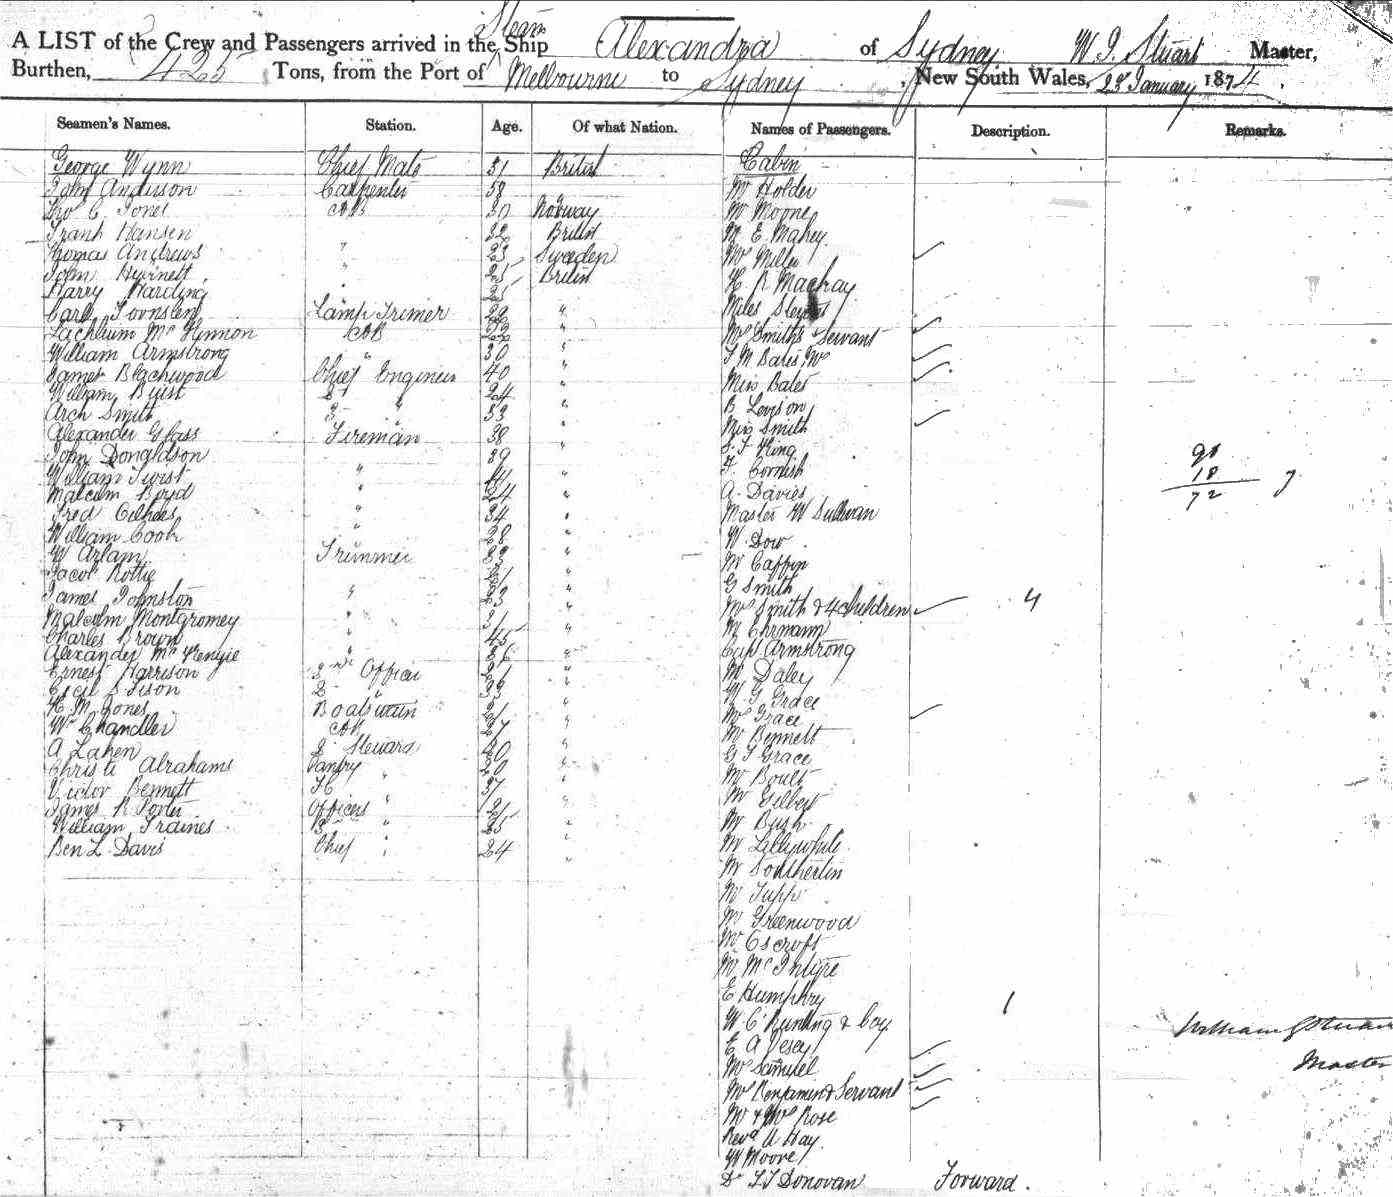 A LIST of the Crew and Passengers arrived in the Steam Ship Alexandra of Sydney W. G. Stuart Master,
Burthen, 425 Tons, from the Port of Melbourne to Sydney, New South Wales, 23 January 1874.
Seamen's Names. Station. Age. Of what Nation. Names of Passengers. Description. Remarks.
George Wynn Chief Mate 31 British
John Anderson Carpenter 38
C Jones AB 30 Norway
Frank Hansen " 32 British
Thomas Andrews " 23 Sweden
John " 25 British
Harry Harding "
Carl Lamp Trimer 29 "
Lachlan McKinnon AB "
William Armstrong " 30 "
James Blackwood Chief Engineer 40 "
William Buist 2d " 24 "
Arch Smith 3 " 33 "
Alexander Glass Fireman 38 "
John Donaldson 39
William Twist " "
Malcolm Boyd " 24 "
Fred " 34 "
William Cook " 28 "
W Arlam Trimmer "
Jacob "
James Johnston " 23 "
Malcolm Montgomery " 31 "
Charles Brown " 45 "
Alexander McKenzie " "
Ernest Harrison 2nd Officer "
Cecil 2 " "
H. M. Jones Boatswain "
Wm Chandler AB "
A Lahen 2 Steward "
Christi Abrahams Pantry " "
Victor Bennett " 37 "
James R Porter Officers " "
William Traines 3 " "
Ben L. Davis Chief " 24 "
Cabin
Mr Holder
Mr Moone
Mr E Mahey
Mrs Miller
H R Mackay
Miles
Mrs Smith & Servant
T. M Bates, Mrs
Miss Bates
B Levison
Miss Smith
King
F. Cornish
A. Davies
Master W Sullivan
W. Dow
Mr Caffin
G Smith
Mrs Smith & 4 children 4
Mr Ehrmann
Capt Armstrong
Mr Daley
W G Grace
Mrs Grace
Mr Bennett
G F Grace
Mr Boult
Mr Gilbert
Mr Bush
Mr Lillywhite
Mr Southerton
Mr
Mr Greenwood
Mr Oscroft
Mr McIntyre
E Humphry
W C Bunting & boy 1
E A Vesey
Mrs Samuel
Mrs Benjamin & Servant
Mr & Mrs Rose
Revd A Hay
W Moore
Dr Donovan Forward.
90
18
72 7
William G Stuart
Master